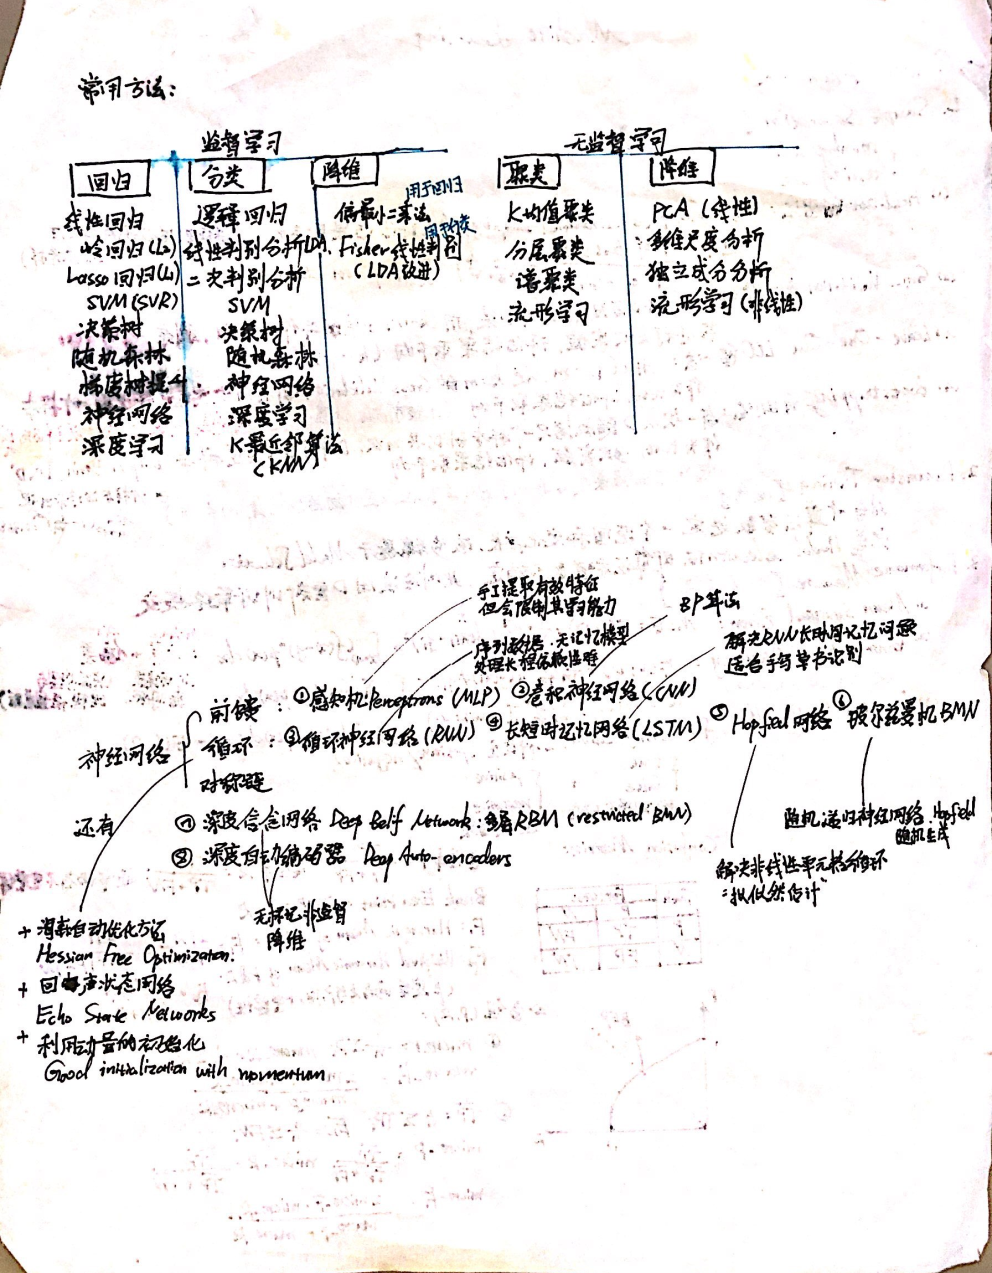 常用方法：
监督学习
无监督学习
回归
分类
降维
聚类
降维
线性回归
岭回归(L₂)
Lasso回归(L₁)
SVM(SVR)
决策树
随机森林
梯度树提升
神经网络
深度学习
逻辑回归
线性判别分析LDA
二次判别分析
SVM
决策树
随机森林
神经网络
深度学习
K最近邻算法
(KNN)
用于回归
偏最小二乘法
用于分类
Fisher线性判别
(LDA改进)
K均值聚类
分层聚类
谱聚类
流形学习
PCA (线性)
多维尺度分析
独立成分分析
流形学习(非线性)
手工提取有效特征
但会限制其学习能力
BP算法
序列数据、无记忆模型
处理长程依赖
解决RNN长时间记忆问题
适合手写草书识别
神经网络
前馈：①感知机Perceptrons (MLP) ②卷积神经网络(CNN)
循环：③循环神经网络(RNN) ④长短时记忆网络(LSTM) ⑤Hopfield网络 ⑥玻尔兹曼机BMN
对称链
还有
⑦深度信念网络 Deep Belf Network：多层RBM (restricted BMN)
⑧深度自动编码器 Deep Auto-encoders
随机递归神经网络 Hopfield
随机生成
解决非线性单元循环
"拟似然估计"
无标记非监督
降维
+ 海森自动优化方法
Hessian Free Optimization.
+ 回声状态网络
Echo State Networks
+ 利用动量的初始化
Good initialization with momentum